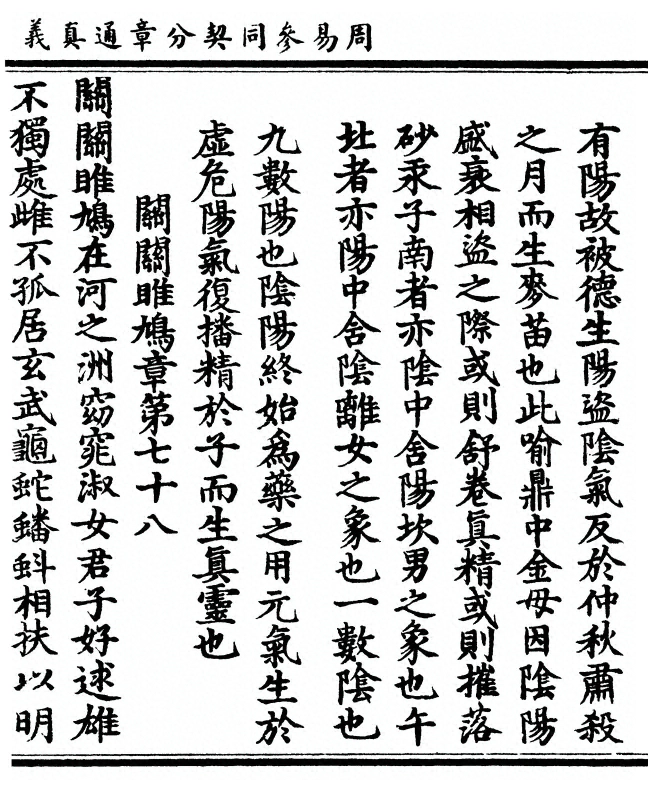 周易參同契分章通真義
有陽故被德生陽盜陰氣反於仲秋肅殺
之月而生麥苗也此喻鼎中金母因陰陽
盛衰相盜之際或則舒卷真精或則摧落
砂汞子南者亦陰中含陽坎男之象也午
北者亦陽中含陰離女之象也一數陰也
九數陽也陰陽終始為藥之用元氣生於
虛危陽氣復播精於子而生真靈也
關關雎鳩章第七十八
關關雎鳩在河之洲窈窕淑女君子好逑雄
不獨處雌不孤居玄武龜蛇蟠蚪相扶以明